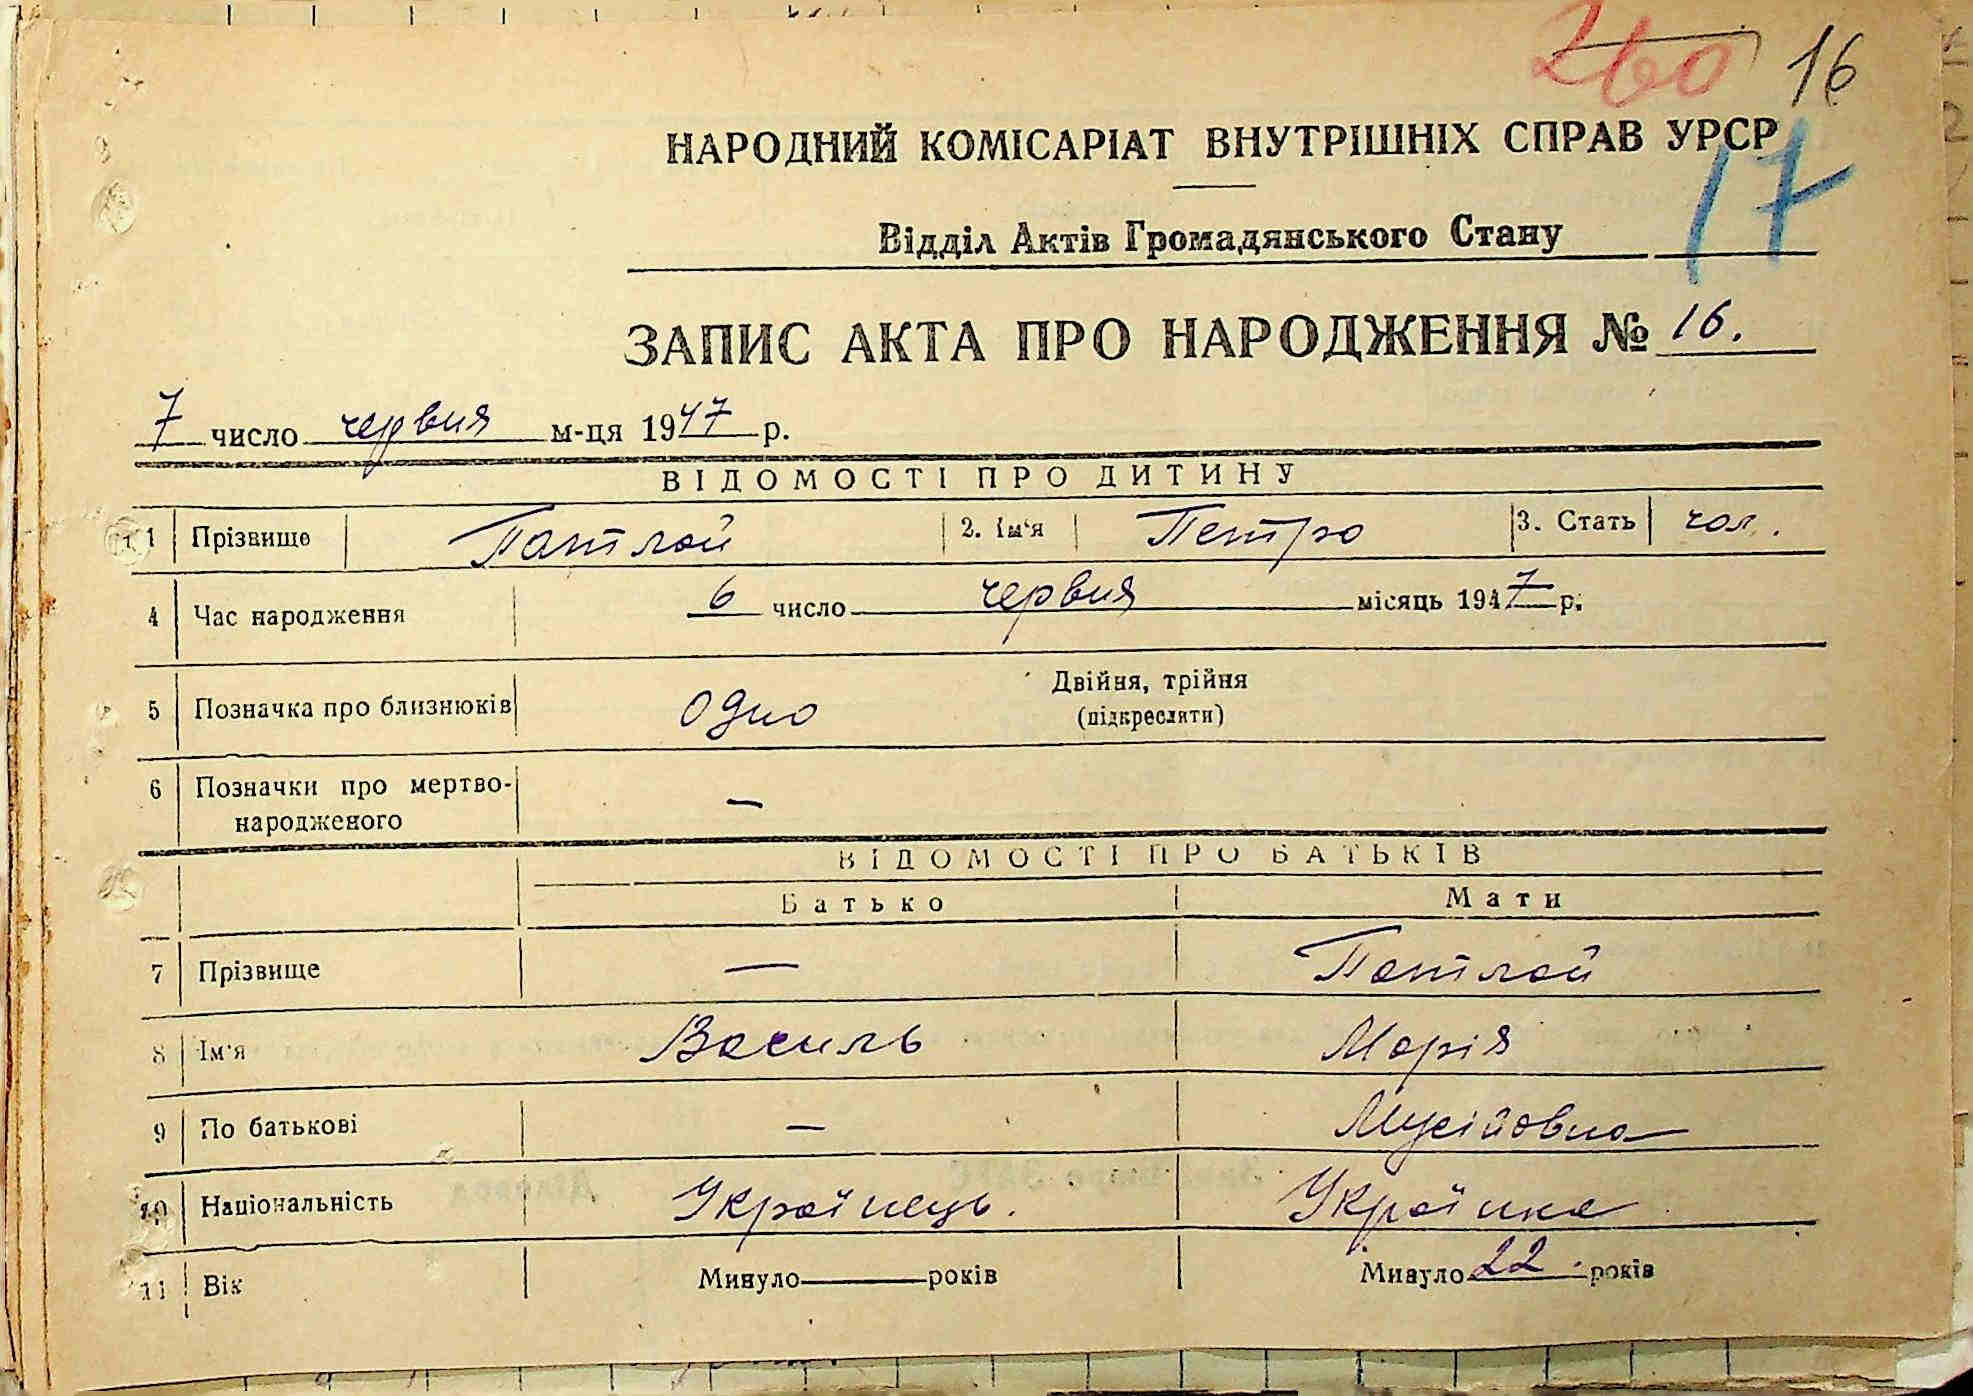 260 16
НАРОДНИЙ КОМІСАРІАТ ВНУТРІШНІХ СПРАВ УРСР
17
Відділ Актів Громадянського Стану
ЗАПИС АКТА ПРО НАРОДЖЕННЯ № 16.
7 число червня м-ця 1947 р.
ВІДОМОСТІ ПРО ДИТИНУ
1 Прізвище Патлай 2. Ім'я Петро 3. Стать чол.
4 Час народження 6 число червня місяць 1947 р.
5 Позначка про близнюків одно Двійня, трійня
(підкреслити)
6 Позначки про мертво-
народженого —
ВІДОМОСТІ ПРО БАТЬКІВ
Батько Мати
7 Прізвище — Патлай
8 Ім'я Василь Марія
9 По батькові — Мусіївовна
10 Національність Українець. Українка
11 Вік Минуло років Минуло 22. років